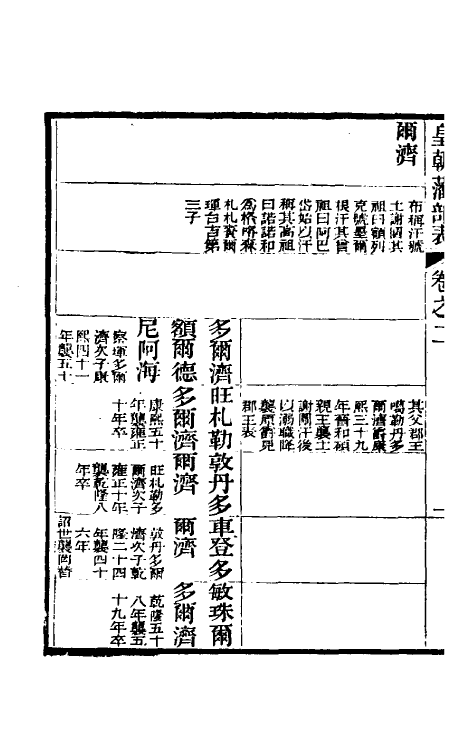 皇朝藩部表
卷之二
爾濟
布稱汗號
土謝圖其
祖曰額列
克號墨爾
根汗其曾
祖曰阿巴
岱始以汗
稱其高祖
曰諾諾和
爲格哷森
札札賚爾
琿台吉第
三子
其父郡王
噶勒丹多
爾濟於康
熙三十九
年晉和碩
親王襲土
謝圖汗後
以溺職降
襲原爵見
郡王表
多爾濟
額爾德
尼阿海
察琿多爾
濟次子康
熙四十一
年襲五十
旺札勒
多爾濟
康熙五十
年襲雍正
十年卒
敦丹多
爾濟
旺札勒多
爾濟次子
雍正十年
襲乾隆八
年卒
車登多
爾濟
敦丹多爾
濟次子乾
隆二十四
年襲四十
六年
詔世襲罔替
敏珠爾
多爾濟
乾隆五十
八年襲五
十九年卒